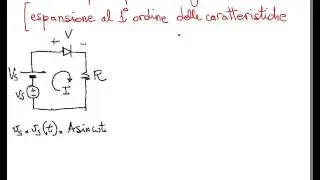 [espansione al 1° ordine delle caratteristiche
+ V -
V_S
v_s
I
R
v_s = v_s(t) = A sin ωt